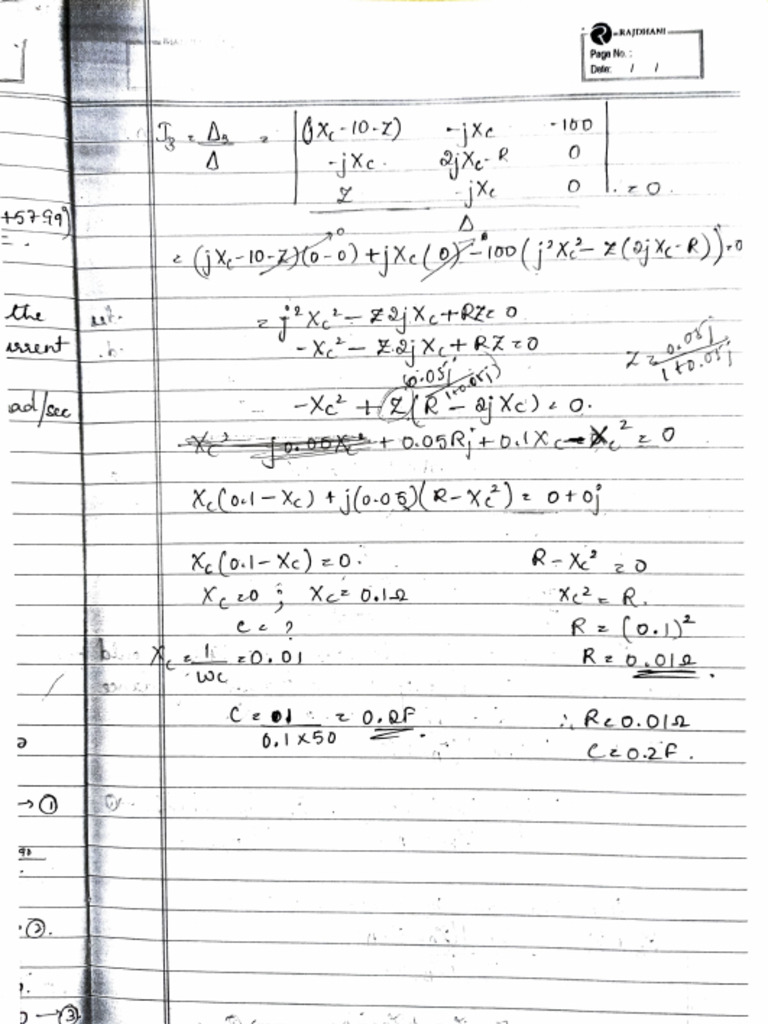 RAJDHANI
Page No. :
Date: / /
I₃ = Δ₃/Δ = | (jXc-10-Z) -jXc -100 |
| -jXc 2jXc-R 0 |
| Z -jXc 0 | = 0
Δ
+57.99)
= (jXc-10-Z)(0-0) + jXc(0) - 100(j²Xc² - Z(2jXc-R)) = 0
the
= j²Xc² - Z2jXc + RZ = 0
-Xc² - Z.2jXc + RZ = 0
Z = 0.05j/1+0.05j
(0.05j/1+0.05j)
ad/sec
-Xc² + Z(R - 2jXc) = 0.
Xc² j0.05Xc² + 0.05Rj + 0.1Xc - Xc² = 0
Xc(0.1-Xc) + j(0.05)(R-Xc²) = 0+0j
Xc(0.1-Xc) = 0. R-Xc² = 0
Xc=0 ; Xc = 0.1Ω Xc² = R.
C = ? R = (0.1)²
Xc = 1/ωc = 0.01 R = 0.01Ω.
C = 1/0.1×50 = 0.2F. ∴ R=0.01Ω
C=0.2F.
→①
②.
→③